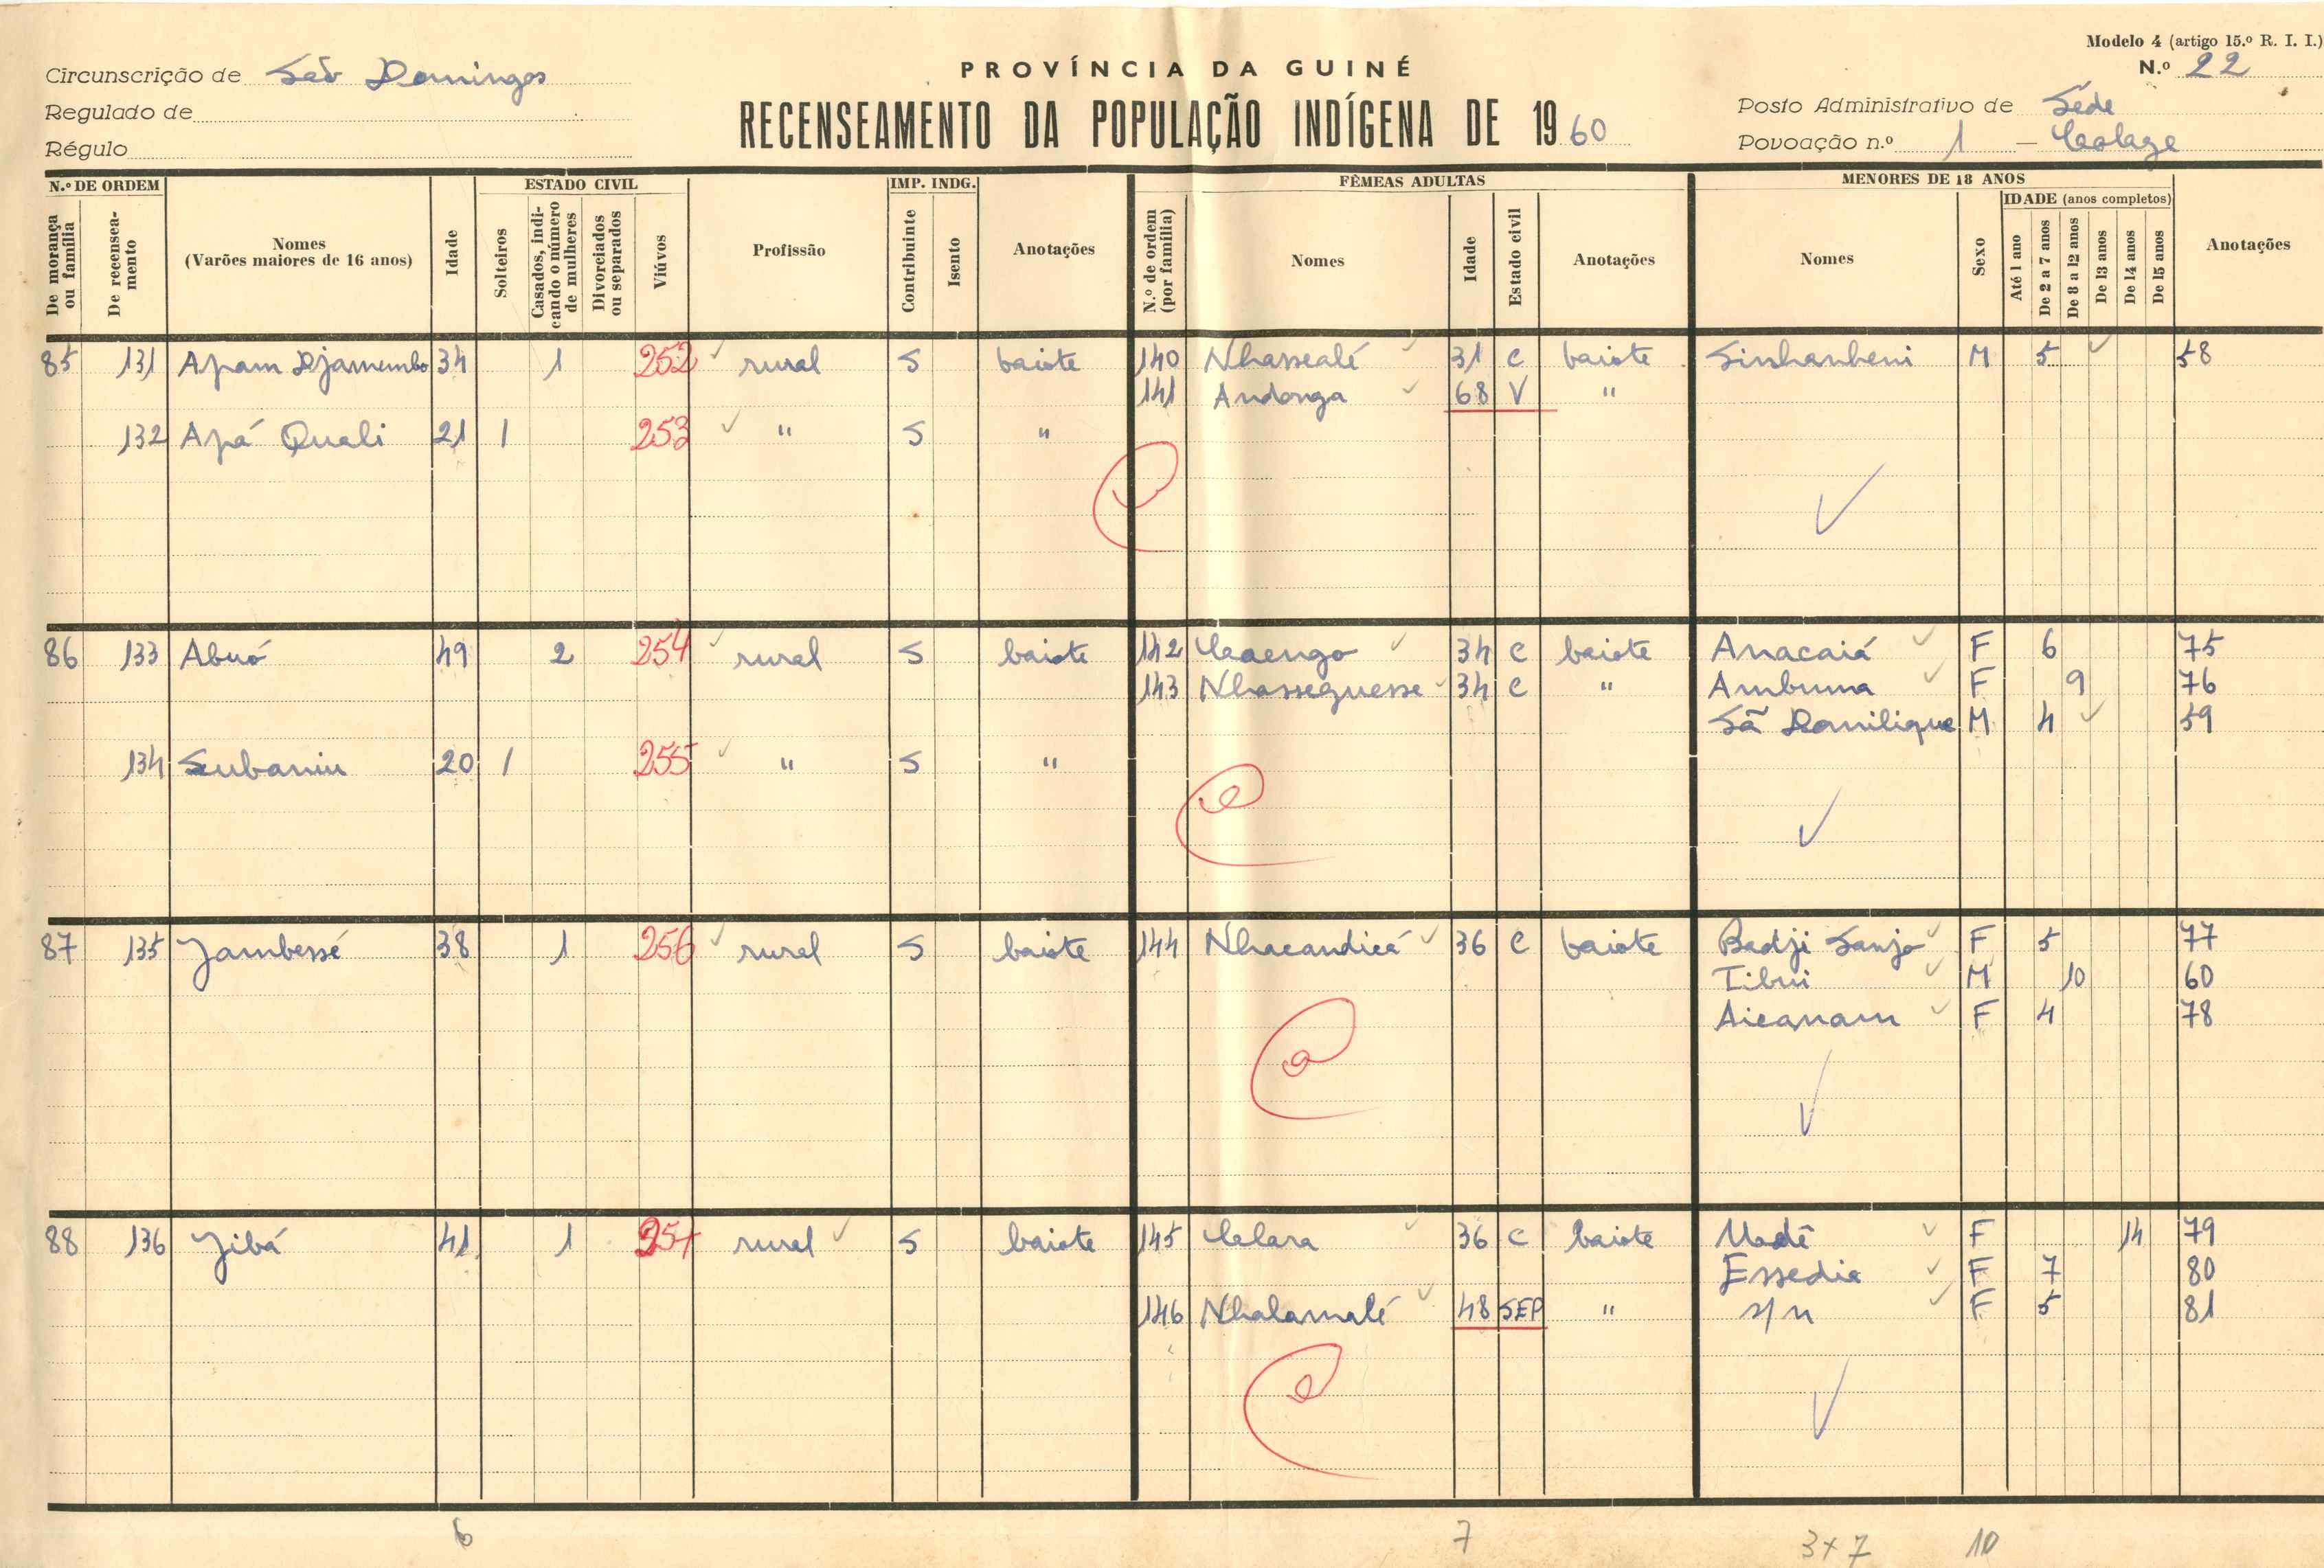 Modelo 4 (artigo 15.º R. I. I.)
N.º 22
Circunscrição de São Domingos
Regulado de
Régulo
PROVÍNCIA DA GUINÉ
RECENSEAMENTO DA POPULAÇÃO INDÍGENA DE 1960
Posto Administrativo de Séde
Povoação n.º 1 — Colage
N.º DE ORDEM
De morança ou família
De recensea-mento
Nomes
(Varões maiores de 16 anos)
Idade
ESTADO CIVIL
Solteiros
Casados, indi-cando o número de mulheres
Divorciados ou separados
Viúvos
Profissão
IMP. INDG.
Contribuinte
Isento
Anotações
FÊMEAS ADULTAS
N.º de ordem (por família)
Nomes
Idade
Estado civil
Anotações
MENORES DE 18 ANOS
Nomes
Sexo
IDADE (anos completos)
Até 1 ano
De 2 a 7 anos
De 8 a 12 anos
De 13 anos
De 14 anos
De 15 anos
Anotações
85 131 Apam Djamembo 34 1 252 rural S baiote 140 Nhassealé 31 C baiote Sinhanbeni M 5 58
141 Andonga 68 V "
132 Apá Quali 21 1 253 " S "
86 133 Abuó 49 2 254 rural S baiote 142 Caengo 34 C baiote Anacaiá F 6 75
143 Nhasseguesse 34 C " Ambuma F 9 76
Sã Danilique M 4 59
134 Subaniu 20 1 255 " S "
87 135 Jambessé 38 1 256 rural S baiote 144 Nhacandicá 36 C baiote Badji Sanjo F 5 77
Tibui M 10 60
Aicanam F 4 78
88 136 Jibá 41 1 257 rural S baiote 145 Clara 36 C baiote Udé F 14 79
Essedia F 7 80
146 Nhalamalé 48 SEP " s/n F 5 81
6 7 3+7 10